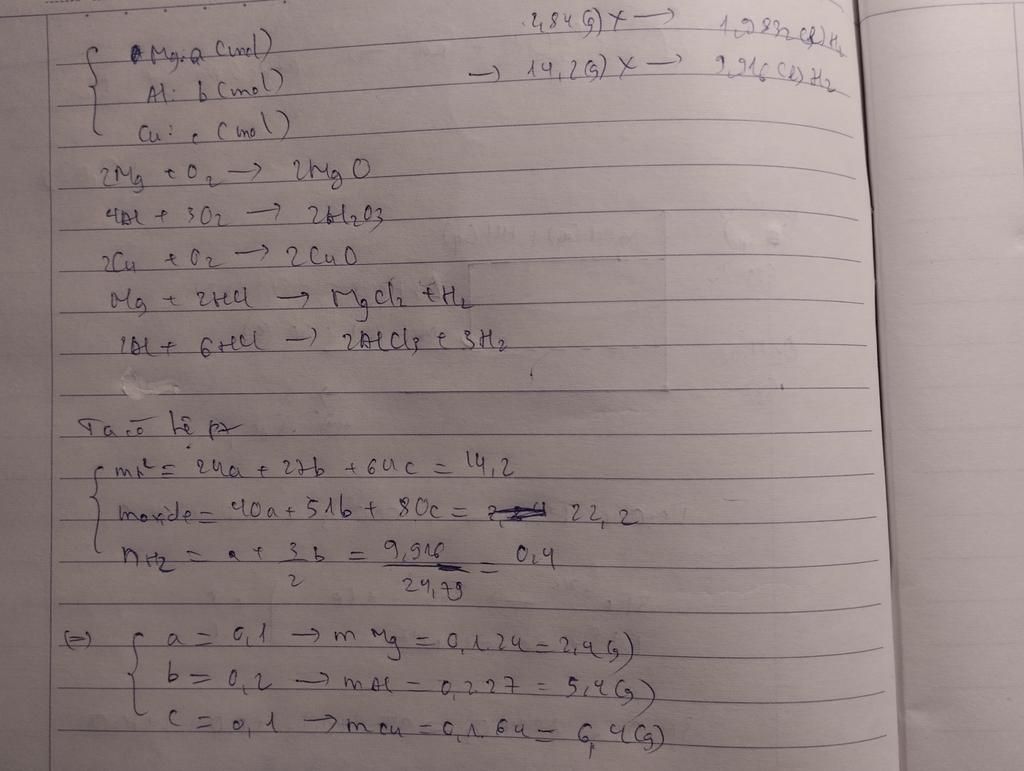 Mg: a (mol)
2,84(g) X → 1,9832(l) H2
Al: b (mol)
→ 14,2(g) X → 9,916(l) H2
Cu: c (mol)
2Mg + O2 → 2MgO
4Al + 3O2 → 2Al2O3
2Cu + O2 → 2CuO
Mg + 2HCl → MgCl2 + H2
2Al + 6HCl → 2AlCl3 + 3H2
Ta có hệ pt
= 24a + 27b + 64c = 14,2
moxide = 40a + 51b + 80c = 22,2
nH2 = a + 3/2 b = 9,916/24,79 = 0,4
(=) a = 0,1 → m Mg = 0,1.24 = 2,4(g)
b = 0,2 → mAl = 0,2.27 = 5,4(g)
c = 0,1 → mCu = 0,1.64 = 6,4(g)